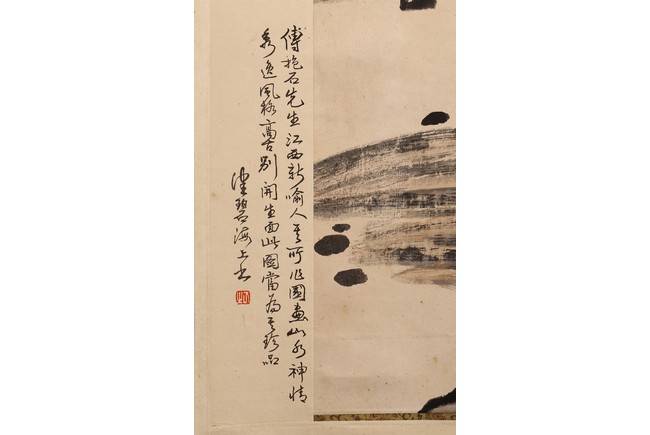 傅抱石先生江西新喻人其所作國畫山水神情
秀逸風格高古別開生面此圖當為其珍品
海上